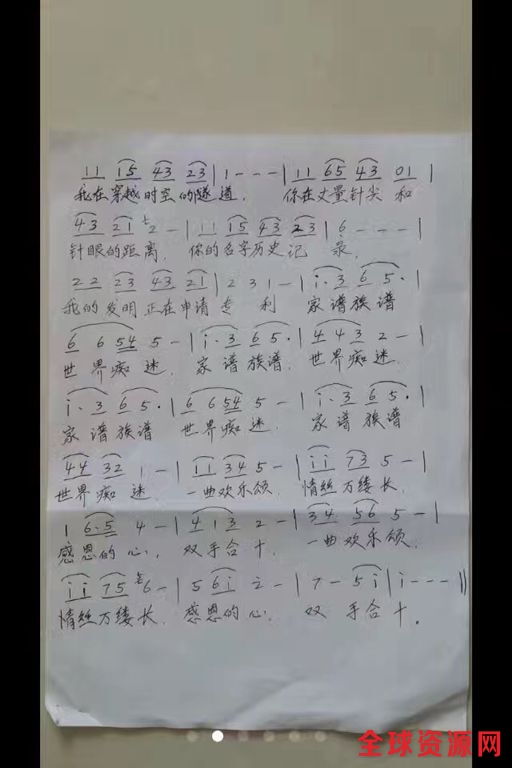 11 15 43 23 | 1 - - - | 11 65 43 01 |
我在穿越时空的隧道, 你在丈量针尖 和
43 21 2 - | 11 15 43 23 | 6 - - - |
针眼的距离, 你的名字历史记 录,
22 23 43 21 | 2 3 1 - | i·3 6 5· |
我的发明正在申请专 利 家谱族谱
6 6 54 5 - | i·3 6 5· | 4 4 3 2 - |
世界痴迷, 家谱族谱, 世界痴迷,
i·3 6 5· | 6 6 54 5 - | i·3 6 5· |
家谱族谱 世界痴迷, 家谱族谱
44 32 1 - | 11 34 5 - | ii 73 5 - |
世界痴 迷, 一曲欢乐颂, 情丝万缕长,
1 6·5 4 - | 4 1 3 2 - | 34 56 5 - |
感恩的心, 双手合十, 一曲欢乐颂,
ii 75 6 - | 5 6i 2 - | 7 - 5i | i - - - ||
情丝万缕长, 感恩的心, 双 手合十.
全球资源网